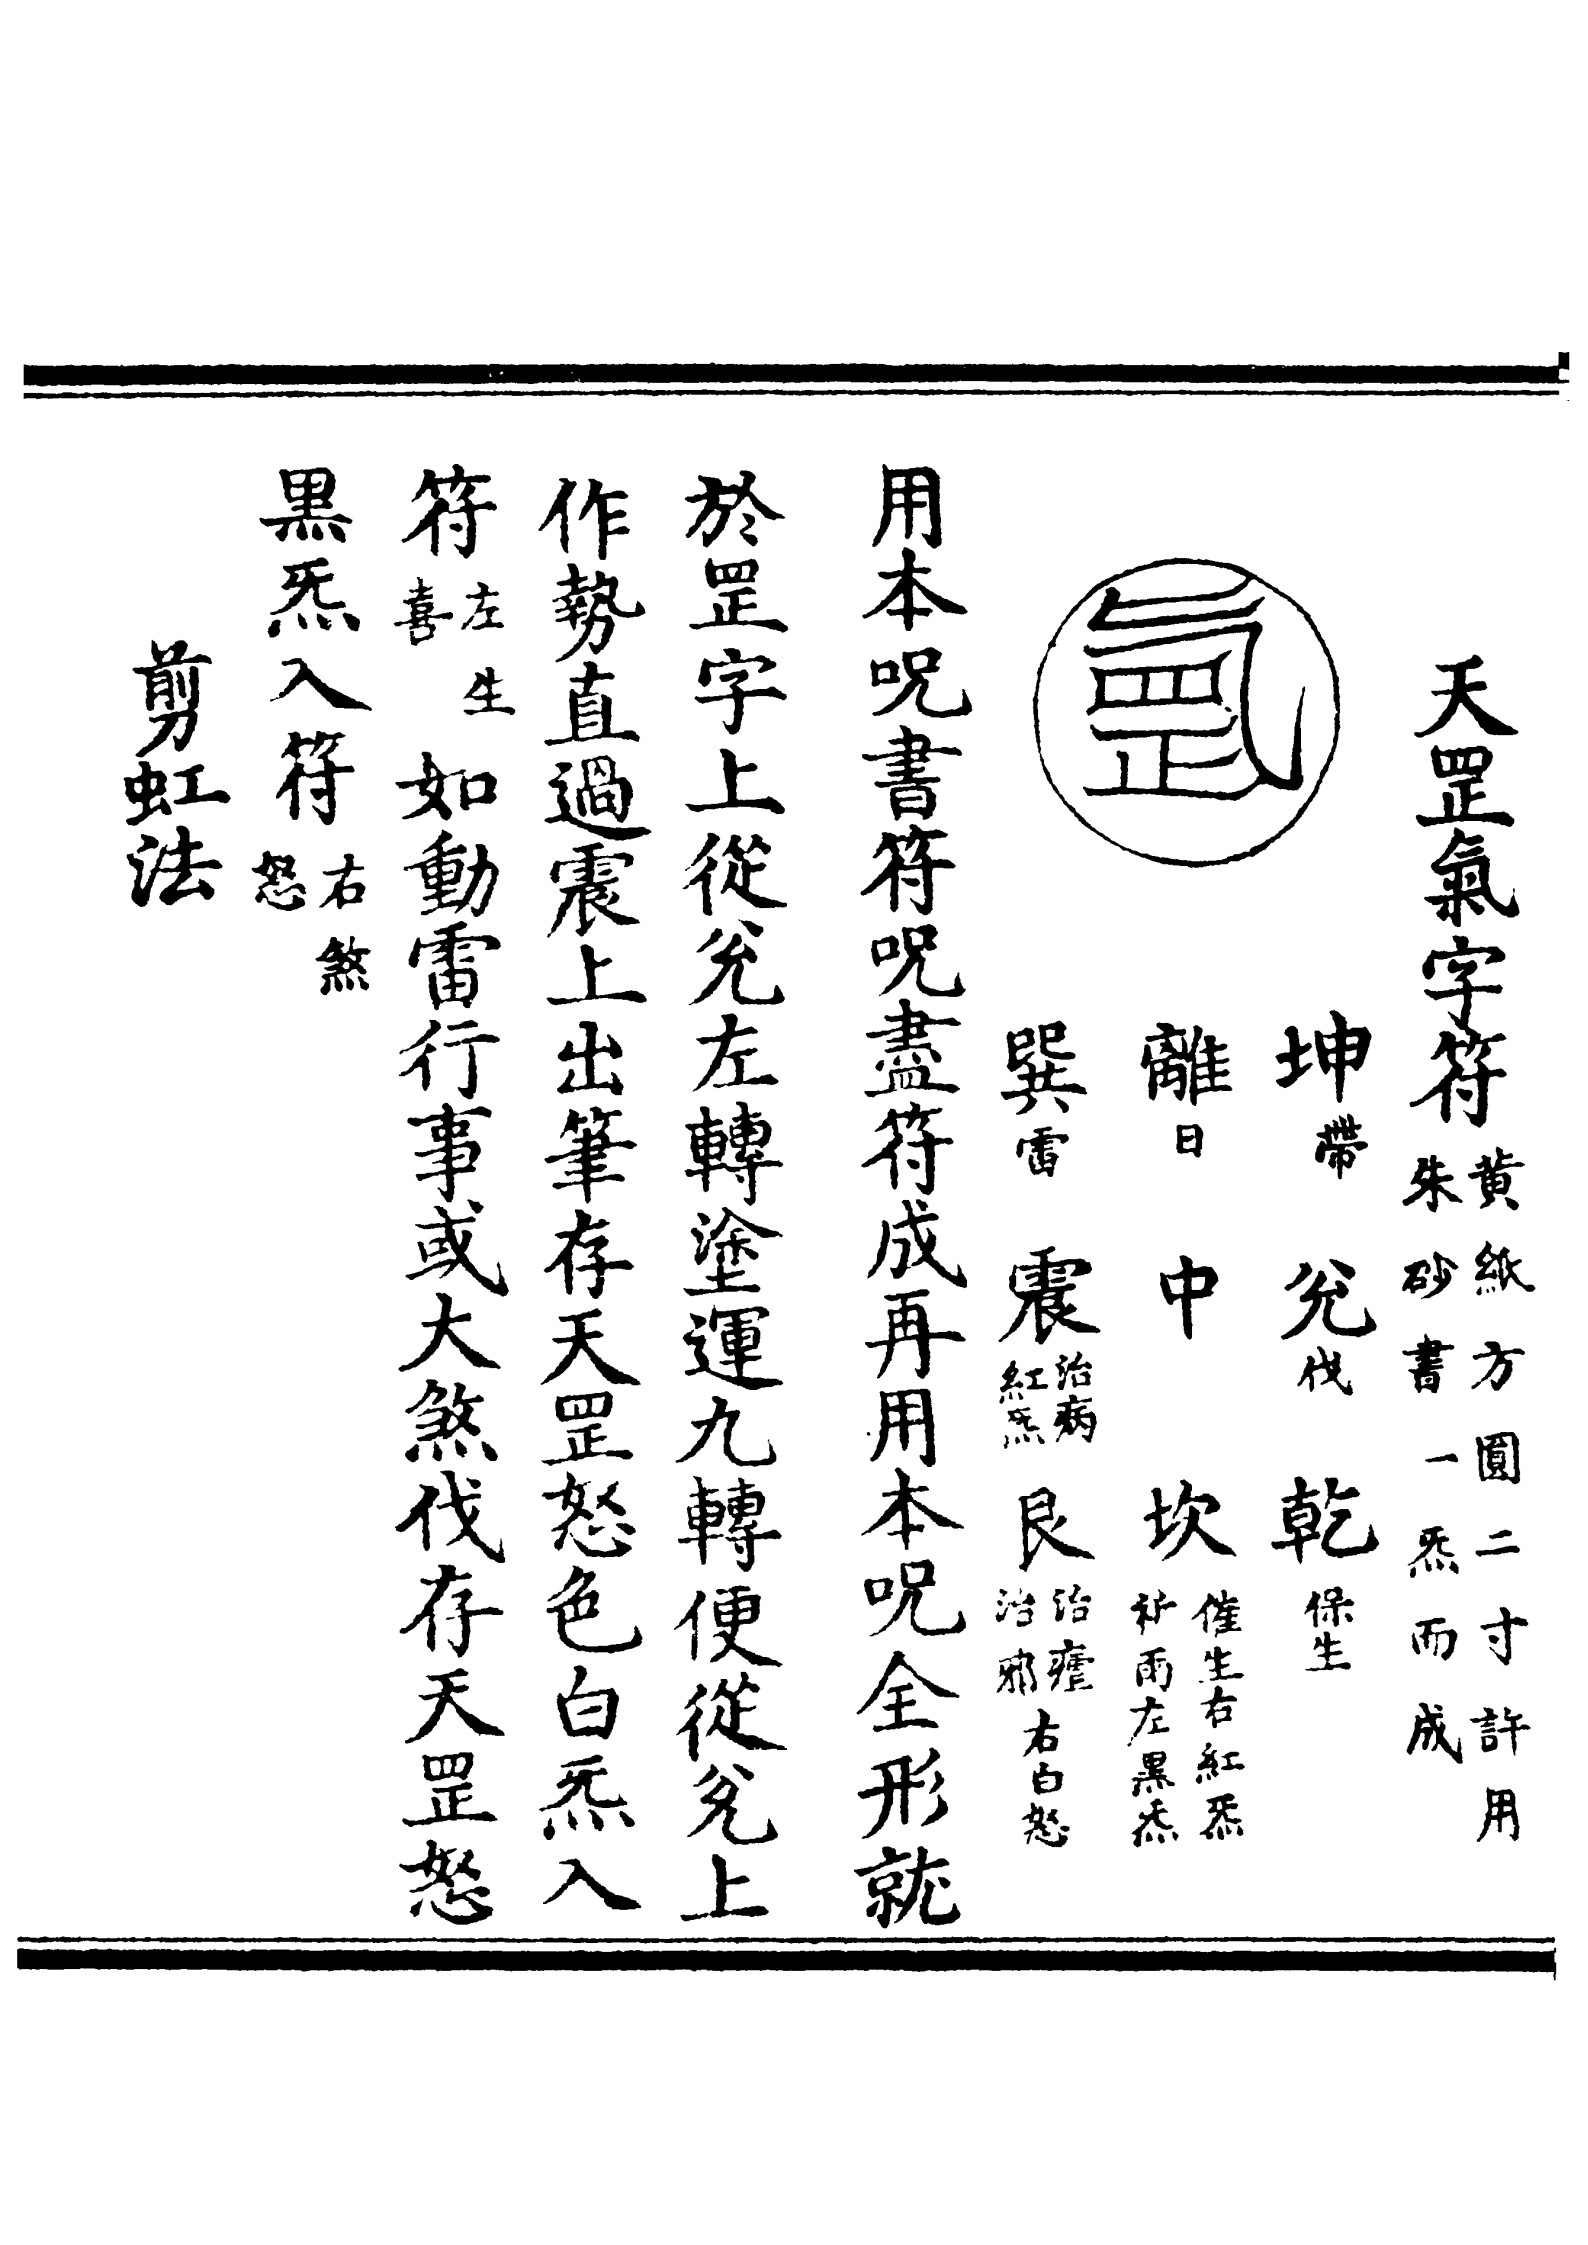 天罡氣字符 黃紙方圓二寸許用朱砂書一炁而成
坤 帶 兊 伐 乾 保生
離 日 中 坎 催生右紅炁祈雨左黑炁
巽 雷 震 治病紅炁 艮 治瘧治邪右白怒
用本呪書符呪盡符成再用本呪全形就
於罡字上從兊左轉塗運九轉便從兊上
作勢直過震上出筆存天罡怒色白炁入
符 左生喜 如動雷行事或大煞伐存天罡怒
黑炁入符 右煞怒
剪虹法